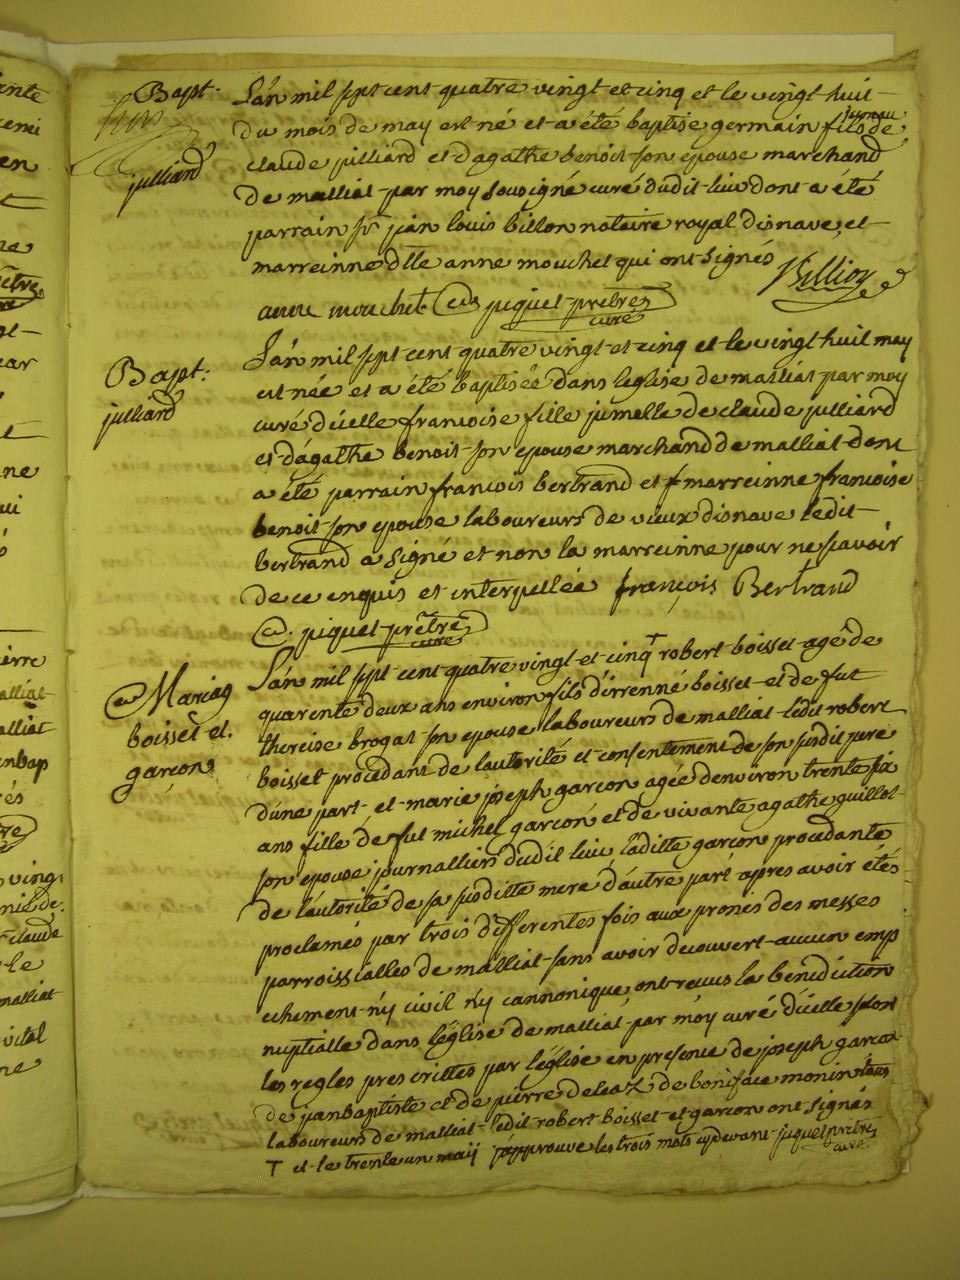 Bapt.
julliard
L'an mil sept cent quatre vingt et cinq et le vingt huit
du mois de may est né et a été baptisé germain fils jumeau de
claude julliard et d'agathe benoit son epouse marchand
de malliat par moy sousigné curé dudit lieu dont a été
parrain sr jean louis billion notaire royal d'isnave, et
marreinne dlle anne mouchet qui ont signés
Billion
anne mouchet. piquet prêtre
curé
Bapt:
julliard
L'an mil sept cent quatre vingt et cinq et le vingt huit may
est née et a été baptisée dans l'eglise de malliat par moy
curé d'icelle francoise fille jumelle de claude julliard
et d'agathe benoit son epouse marchand de malliat dont
a été parrain francois bertrand et marreinne francoise
benoit son epouse laboureurs de vieux d'isnave ledit
bertrand a signé et non la marreinne pour ne scavoir
de ce enquis et interpellée françois Bertrand
piquet prêtre
curé
Mariag
boisset et.
garçon
L'an mil sept cent quatre vingt et cinq † robert boisset agé de
quarente deux ans environ fils d'irrenné boisset et de fut
thereise brogat son epouse laboureurs de malliat ledit robert
boisset procedant de l'autorité et consentement de son susdit pere
d'une part et marie joseph garçon agée d'environ trente six
ans fille de fut michel garçon et de vivante agathe guillot
son epouse journalliers dudit lieu laditte garçon procedante
de l'autorité de sa susditte mere d'autre part apres avoir étés
proclamés par trois differentes fois aux prones des messes
parroissialles de malliat sans avoir decouvert aucun emp
echement n'y civil n'y cannonique, ont reçus la benediction
nuptialle dans l'église de malliat par moy curé d'icelle selon
les regles prescrittes par l'église en presence de joseph garçon
de jeanbaptiste et de pierre deleaz de boniface monin tous
laboureurs de malliat ledit robert boisset et garçon ont signés
† et le trente un maij j'approuve les trois mots cydevant piquet prêtre
curé